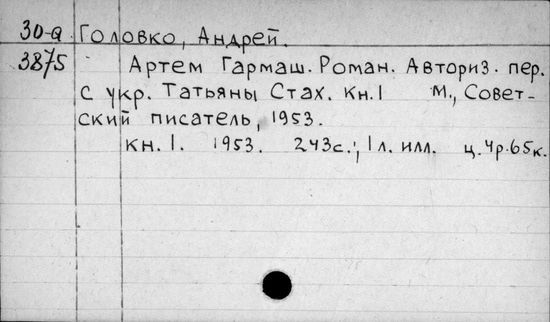 30-а Головко, Андрей.
3875 Артем Гармаш. Роман. Авториз. пер.
с укр. Татьяны Стах. Кн.1 М., Совет-
ский писатель, 1953.
кн. 1. 1953. 243с.; 1л. илл. ц. 4р. 65к.